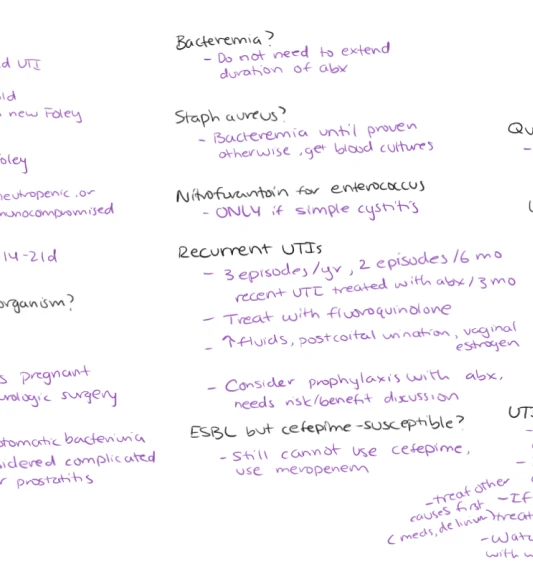 d UTI
ld
new Foley
Foley
neutropenic, or
munocompromised
14-21d
organism?
s pregnant
urologic surgery
ptomatic bacteriuria
sidered complicated
r prostatitis
Bacteremia?
- Do not need to extend
duration of abx
Staph aureus?
- Bacteremia until proven
otherwise, get blood cultures
Nitrofurantoin for enterococcus
- ONLY if simple cystitis
Recurrent UTIs
- 3 episodes/yr, 2 episodes/6 mo
recent UTI treated with abx/3mo
- Treat with fluoroquinolone
- ↑fluids, postcoital urination, vaginal
estrogen
- Consider prophylaxis with abx,
needs risk/benefit discussion
ESBL but cefepime-susceptible?
- Still cannot use cefepime,
use meropenem
Qu
-
UT
-
-
- treat other
causes first
(meds, delirium)
- If
treat
- Wat
with w